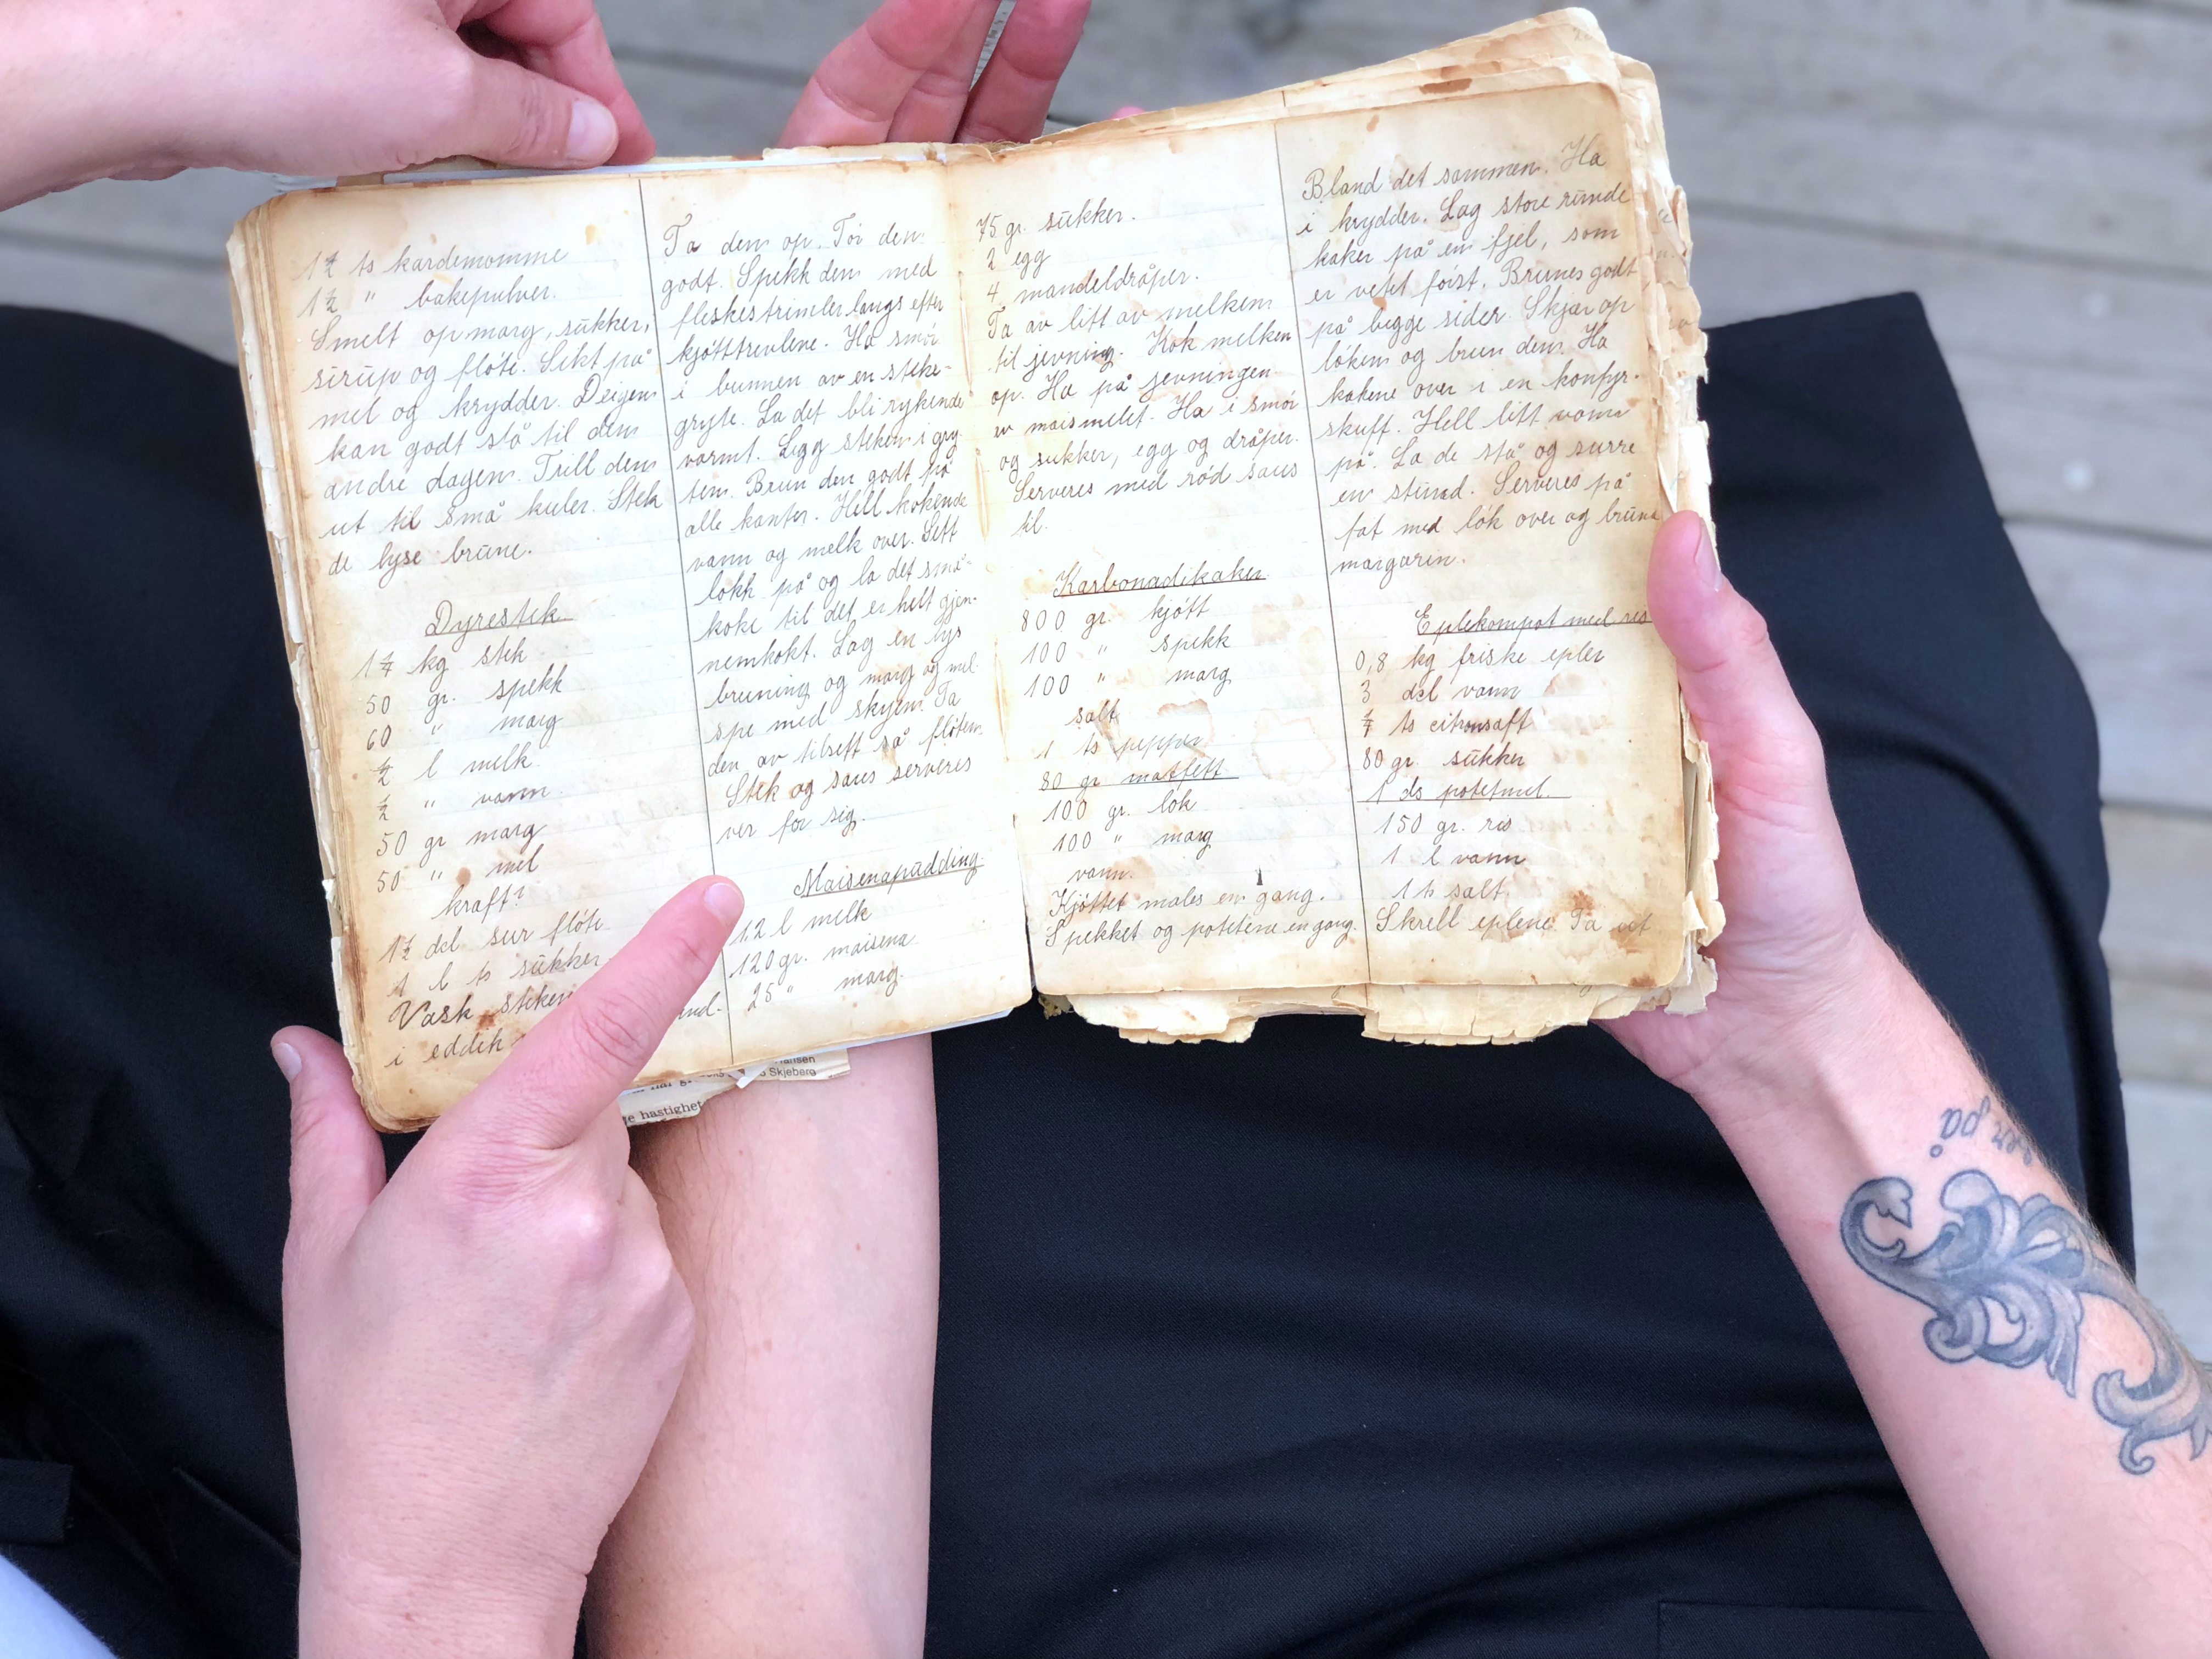 1½ ts kardemomme
1½ " bakepulver.
Smelt op marg, sukker,
sirup og fløte. Sikt på
mel og krydder. Deigen
kan godt stå til den
andre dagen. Trill dem
ut til små kuler. Stek
de lyse brune.
Dyrestek
kg stek
50 gr. spekk
60 " marg
½ l melk
½ " vann
50 gr marg
50 " mel
kraft?
1½ del sur fløte
1 ts sukker
Vask steken
i eddik
Ta den op. Tør den
godt. Spekk den med
fleskestrimler langs efter
kjøttrevlene. Ha smør
i bunnen av en steke-
gryte. La det bli rykende
varmt. Legg steken i gry-
ten. Brun den godt på
alle kanter. Hell kokende
vann og melk over. Sett
lokk på og la det små-
koke til det er helt gjen-
nemkokt. Lag en lys
bruning og marg og mel
spe med skyen. Ta
den av tilsett så fløten
Stek og saus serveres
ver for sig.
Maisenapudding
1.2 l melk
120 gr. maisena
25 " marg.
75 gr. sukker.
2 egg
4 mandeldråper.
Ta av litt av melken
til jevning. Kok melken
op. Ha på jevningen
av maismelet. Ha i smør
og sukker, egg og dråper.
Serveres med rød saus
til.
Karbonadekaker
800 gr. kjøtt
100 " spekk
100 " marg
salt
1 ts pepper
80 gr matfett
100 gr. løk
100 " marg
vann.
Kjøttet males en gang.
Spekket og potetene en gang.
Bland det sammen. Ha
i krydder. Lag store runde
kaker på en fjel, som
er vetet først. Brunes godt
på begge sider. Skjær op
løken og brun den. Ha
kakene over i en
skuff. Hell litt vann
på. La de stå og surre
en stund. Serveres på
fat med løk over og bruna
margarin.
Eplekompot med ris
0,8 kg friske epler
3 del vann
ts citronsaft
80 gr. sukker
1 ds potetmel.
150 gr. ris
1 l vann
1 ts salt.
Skrell eplene. Ta
Hansen
Skjeberg
hastighet
på